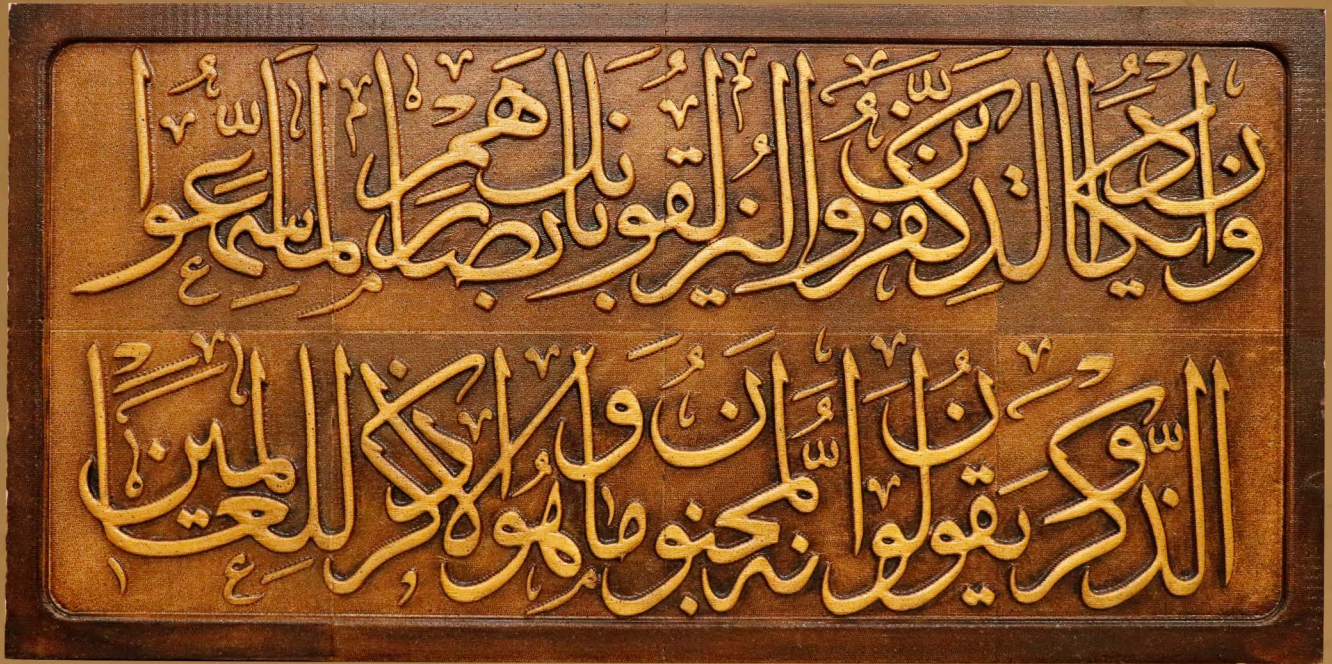 وان يكاد الذين كفروا ليزلقونك بابصارهم لما سمعوا
الذكر ويقولون انه لمجنون وما هو الا ذكر للعالمين